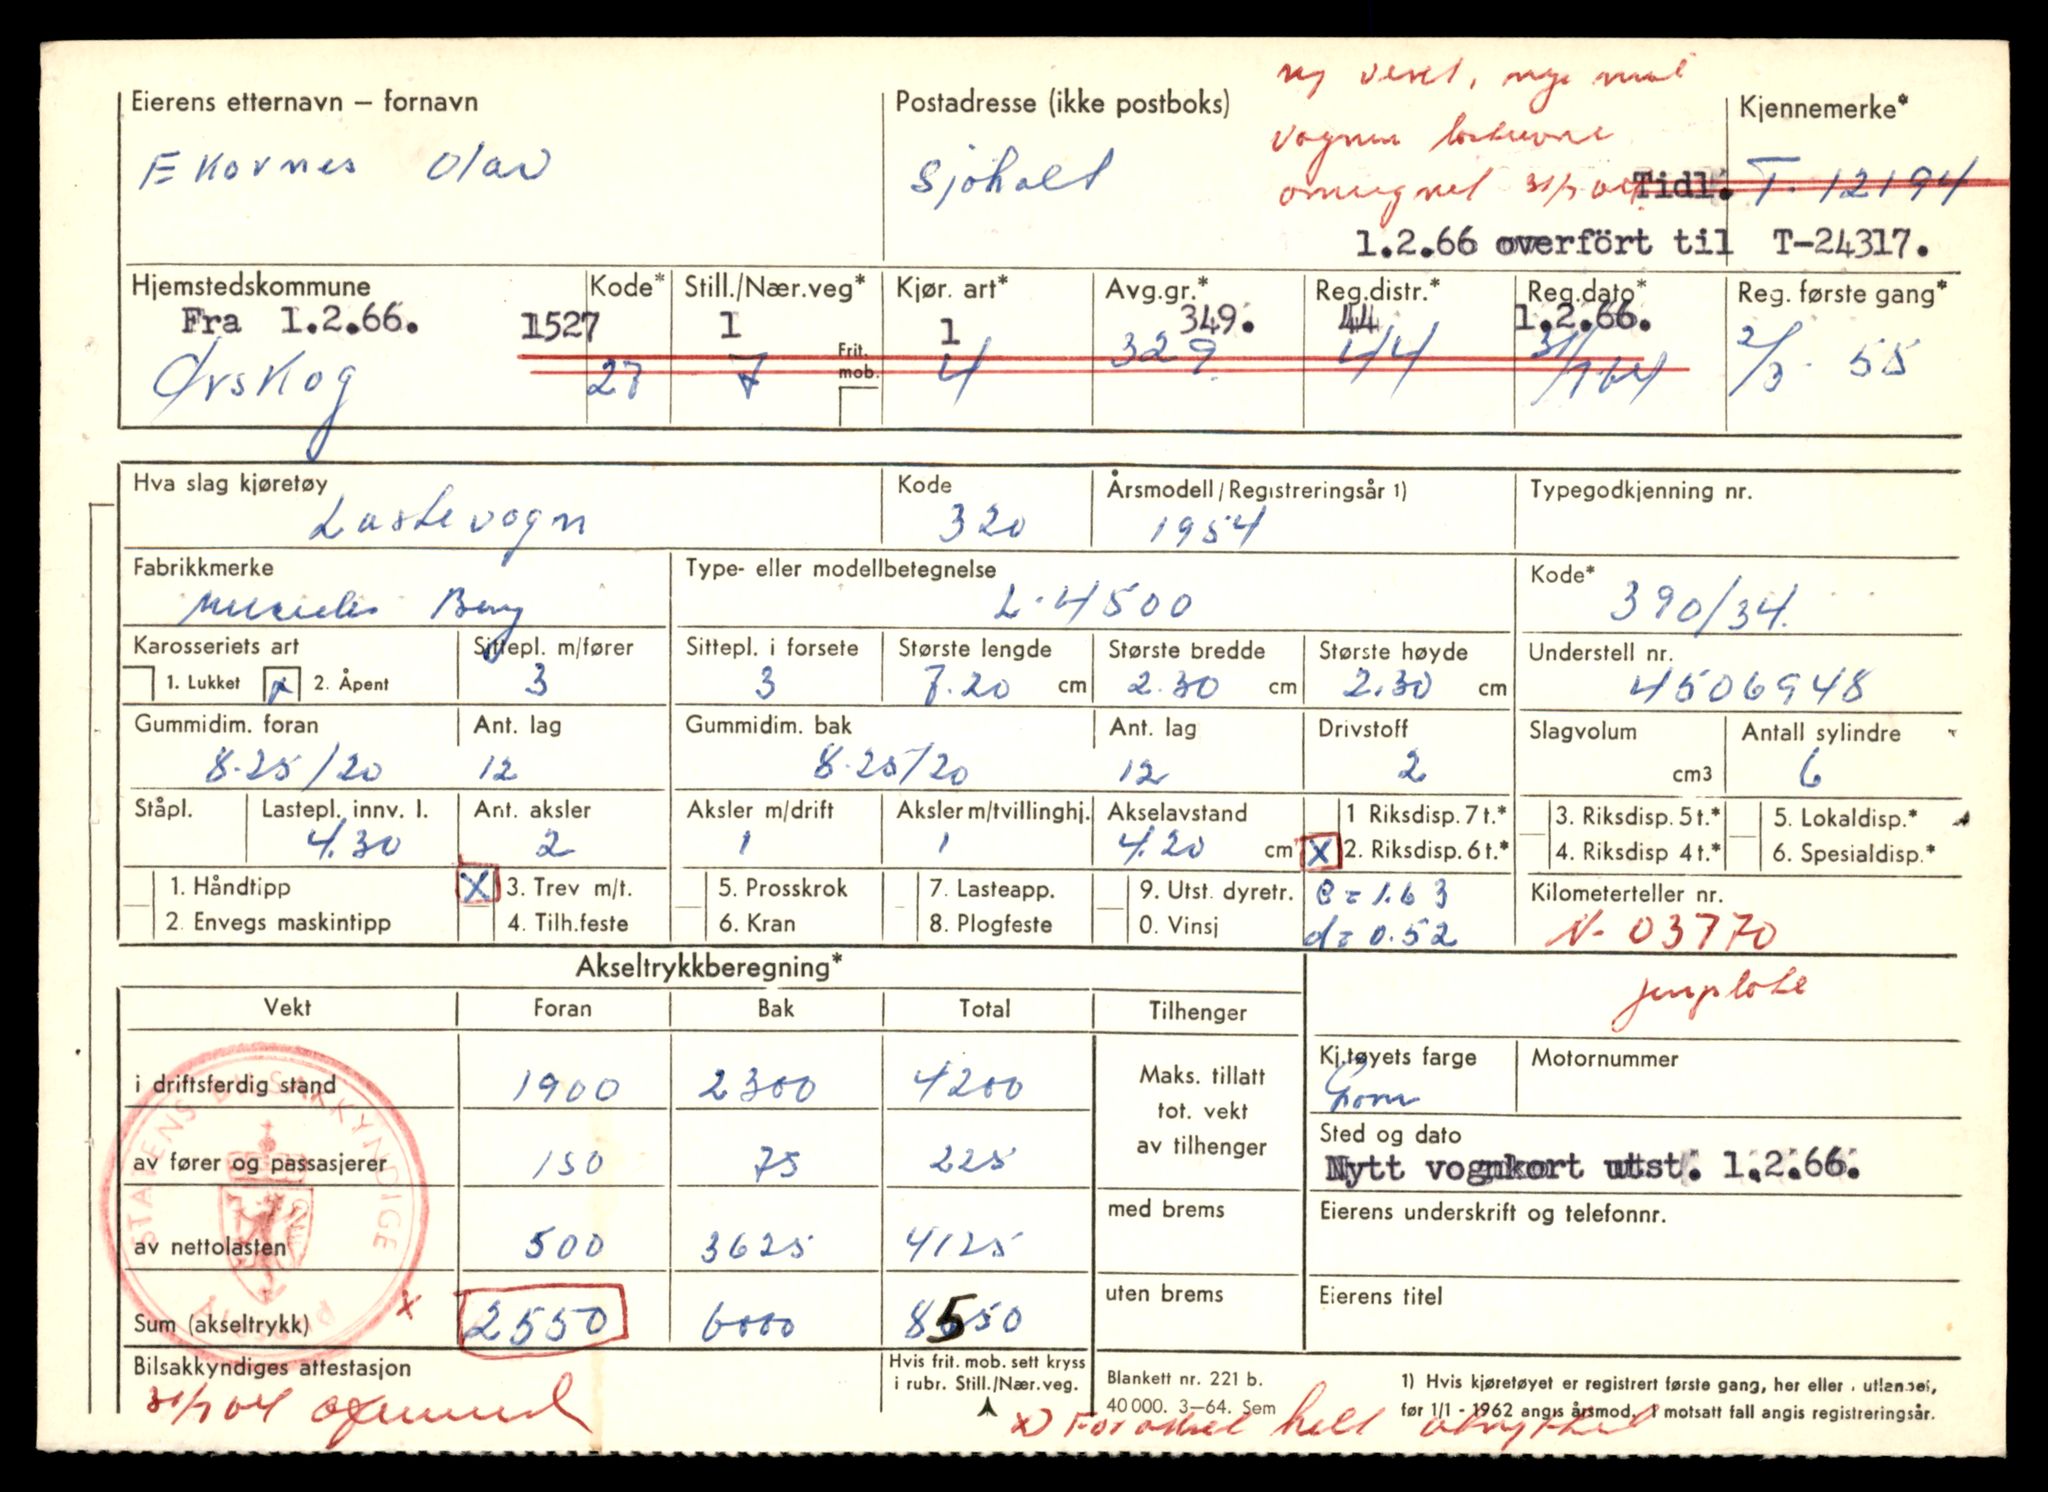 Eierens etternavn – fornavn
Ekornes Olav
Postadresse (ikke postboks)
Sjøholt
ny vekt, nye mål
vognen
omregnet 31/7 64
Kjennemerke*
Tidl. T-12194
1.2.66 overfört til T-24317.
Hjemstedskommune Kode* Still./Nær.veg* Kjør. art* Avg.gr.* Reg.distr.* Reg.dato* Reg. første gang*
Fra 1.2.66. 1527 1 1 349. 44 1.2.66.
Frit. mob.
Ørskog 27 7 4 329 44 31/7 64 2/3 - 55
Hva slag kjøretøy Kode Årsmodell/Registreringsår 1) Typegodkjenning nr.
Lastevogn 320 1954
Fabrikkmerke Type- eller modellbetegnelse Kode*
Mercedes Benz L.4500 390/34.
Karosseriets art Sittepl. m/fører Sittepl. i forsete Største lengde Største bredde Største høyde Understell nr.
1. Lukket x 2. Åpent 3 3 7.20 cm 2.30 cm 2.30 cm 4506948
Gummidim. foran Ant. lag Gummidim. bak Ant. lag Drivstoff Slagvolum Antall sylindre
8.25/20 12 8.25/20 12 2 cm3 6
Ståpl. Lastepl. innv. l. Ant. aksler Aksler m/drift Aksler m/tvillinghj. Akselavstand 1 Riksdisp. 7 t.* 3. Riksdisp. 5 t.* 5. Lokaldisp.*
4.30 2 1 1 4.20 cm X 2. Riksdisp. 6 t.* 4. Riksdisp 4 t.* 6. Spesialdisp.*
1. Håndtipp X 3. Trev m/t. 5. Prosskrok 7. Lasteapp. 9. Utst. dyretr. e = 1.63 Kilometerteller nr.
2. Envegs maskintipp 4. Tilh.feste 6. Kran 8. Plogfeste 0. Vinsj d = 0.52 N- 03770
Akseltrykkberegning*
Vekt Foran Bak Total Tilhenger
i driftsferdig stand 1900 2300 4200
Maks. tillatt
tot. vekt
av tilhenger
Kj.tøyets farge Motornummer
Grønn
av fører og passasjerer 150 75 225
Sted og dato
Nytt vognkort utst. 1.2.66.
av nettolasten 500 3625 4125
med brems
Eierens underskrift og telefonnr.
Sum (akseltrykk) x 2550 6000 8550
uten brems
Eierens titel
STATENS BILSAKKYNDIGE
Bilsakkyndiges attestasjon
31/7 64
Hvis frit. mob. sett kryss
i rubr. Still./Nær.veg.
Blankett nr. 221 b.
40 000. 3–64. Sem
1) Hvis kjøretøyet er registrert første gang, her eller i utlandet,
før 1/1 - 1962 angis årsmod. I motsatt fall angis registreringsår.
x) Foraksel helt utnyttet